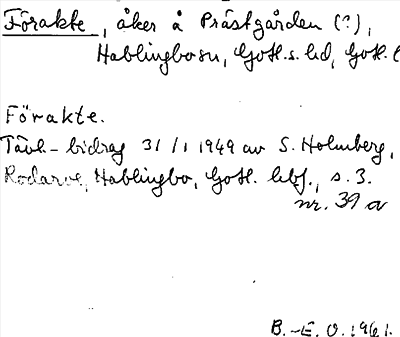 Förakte, åker å Prästgården (?),
Hablingbo sn, Gotl. s. hd, Gotl. l
Förakte.
Tävl.-bidrag 31/1 1949 av S. Holmberg,
Rodarve, Hablingbo, Gotl. lkf., s. 3.
nr. 39 a
B.-E. O. 1961.